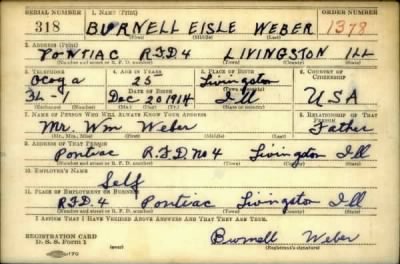 SERIAL NUMBER 1. NAME (Print) ORDER NUMBER
318 BURNELL EISLE WEBER 1378
(First) (Middle) (Last)
2. ADDRESS (Print)
PONTIAC R.F.D 4 LIVINGSTON ILL
(Number and street or R. F. D. number) (Town) (County) (State)
3. TELEPHONE 4. AGE IN YEARS 5. PLACE OF BIRTH 6. COUNTRY OF CITIZENSHIP
25 Livingston
(Town or county)
DATE OF BIRTH
Dec 20 1914 Ill USA
(Mo.) (Day) (Yr.) (State or country)
7. NAME OF PERSON WHO WILL ALWAYS KNOW YOUR ADDRESS 8. RELATIONSHIP OF THAT PERSON
Mr. Wm Weber Father
(Mr., Mrs., Miss) (First) (Middle) (Last)
9. ADDRESS OF THAT PERSON
Pontiac R.F.D. No 4 Livingston Ill
(Number and street or R. F. D. number) (Town) (County) (State)
10. EMPLOYER'S NAME
Self
11. PLACE OF EMPLOYMENT OR BUSINESS
R.F.D. 4 Pontiac Livingston Ill
(Number and street or R. F. D. number) (Town) (County) (State)
I AFFIRM THAT I HAVE VERIFIED ABOVE ANSWERS AND THAT THEY ARE TRUE.
REGISTRATION CARD
D. S. S. Form 1 (over) Burnell Weber
(Registrant's signature)